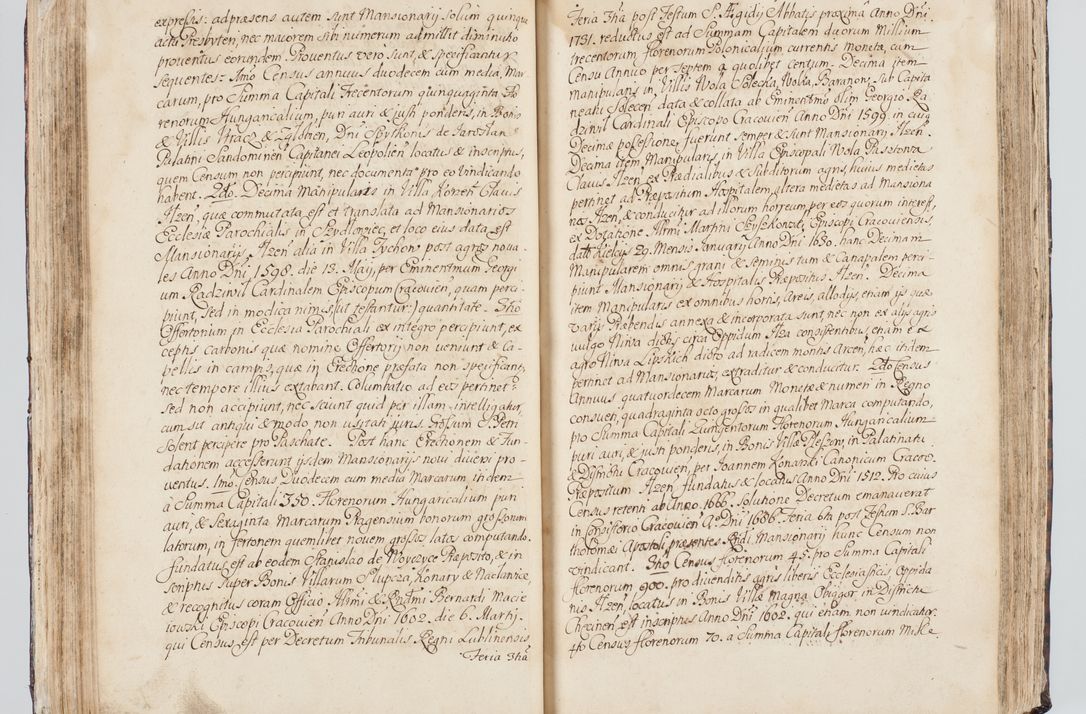 expressis: ad præsens autem sunt Mansionarij solum quinque
actu Presbyteri, nec maiorem sibi numerum admittit diminutio
proventus eorundem. Proventus vero sunt, & specificantur
sequentes: Imo Census annuus duodecem cum media, Mar
carum, pro Summa Capitali Trecentorum quinquaginta Flo
renorum Hungaricalium, puri auri & justi ponderis, in Bonis
& Villis Utacz & Dni de Jarosław
Palatini Sandomirien Capitanei Leopolien locatus & inscriptus,
quem Censum non percipiunt, nec documenta pro eo vindicando
habent. 2do. Decima Manipularis in Villa Clavis
Ilzen, quæ commutata est et translata ad Mansionarios
Ecclesiæ Parochialis in Szydlowiec, et loco eius data est
Mansionarijs Ilzen alia in Villa Tychow post agros nova-
les Anno Dni 1598. die 13. Maij, per Eminentmum Georgi
um Radziwil Cardinalem Episcopum Cracovien, quam perci
piunt, sed in modica nimis, (ut testantur) quantitate. 3tio
Offertorium in Ecclesia Parochiali ex integro percipiunt, ex
ceptis carbonis quæ nomine Offertorij non veniunt & Ca-
pellis in campis, quæ in Erectione præfata non specificant,
nec tempore illius extabant. Columbatio ad eos pertinet:
sed non accipiunt, nec sciunt quid per illam intelligatur,
cum sit antiqui & modo non usitati juris. Grossum S. Petri
solent percipere pro Paschate. Post hanc Erectionem & Fun-
dationem accesserunt ijsdem Mansionarijs novi diversi pro-
ventus. Imo Census Duodecem cum media Marcarum itidem
à Summa Capitali 350. Florenorum Hungaricalium puri
auri, & Sexaginta Marcarum Pragensium bonorum grossorum
latorum, in fertonem quemlibet novem grossos latos computando.
fundatus est ab eodem Stanislao de Woyczyce Præposito, & in
scriptus super Bonis Villarum Słupcza, Konary & Naclawice,
& recognitus coram Officio Illrmi & Rndmi Bernardi Macie
iowski Episcopi Cracovien Anno Dni 1602. die 6. Martij.
qui Census est per Decretum Tribunalis Regni Lublinensis
Feria 3tia
Feria 3tia post Festum S. Ægidij Abbatis proxima Anno Dni
1731. reductus est ad Summam Capitalem duorum Millium
trecentorum florenorum Polonicalium currentis moneta, cum
Censu Annuo per septem à quolibet centum. Decima item
Manipularis in Villis Wola Solecka, Wolia Baranow, sub Capita
neatu Solecen data & collata ab Eminentmo olim Georgio Ra
dziwil Cardinali Episcopo Cracovien Anno Dni 1599. in cuius
Decimæ possessione fuerunt semper & sunt Mansionarij Ilzen.
Decima item Manipularis in Villa Episcopali Wola Passiona
Clavis Ilzen ex Prædialibus & Subditorum agris, huius medietas
pertinet ad Præpositum Hospitalem, altera medietas ad Mansiona
rios Ilzen, & conducitur ad illorum horreum per eos quorum interest,
ex Dotatione Illrmi Martini Szyszkowski, Episcopi Cracoviensis
datt. Kielcys 29. Mensis Januarij Anno Dni 1630. hanc Decimam
Manipularem omnis grani & seminis tam & Canapalem perci
piunt Mansionarij & Hospitalis Præpositus Ilzen. Decima
item Manipularis ex omnibus hortis, areis, allodijs, etiam ijs quæ
varijs Præbendis annexa & incorporata sunt, nec non ex alijs agris
vulgo Niwa dictis circa Oppidum Ilza consistentibus, etiam & ex
agro Niwa Lipskich dicto ad radicem montis Arcen, hæc itidem
pertinet ad Mansionarios, extraditur & conducitur. 2do Census
Annuus quatuordecem Marcarum Monetæ & numeri in Regno
consueti, quadraginta octo grossos in qualibet Marca computando,
pro Summa Capitali Quingentorum Florenorum Hungaricalium
puri auri, & justi ponderis, in Bonis Villæ in Palatinatu
& Districtu Cracovien, per Joannem Konarski Canonicum Cracov.
Præpositum Ilzen fundatus & locatus Anno Dni 1512. Pro cuius
Census retenti ab Anno 1666. solutione Decretum emanaverat
in Consistorio Cracovien Ao Dni 1686. Feria 6ta post Festum S. Bar
tholomæi Apostoli, præsentes Rndi Mansionarij hunc Censum non
vindicant. 3tio Census florenorum 45. pro Summa Capitali
florenorum 900. pro divenditis agris liberis Ecclesiasticis Oppida
nis Ilzen, locatus in Bonis Villæ Magna in Districtu
Chęcinen est inscriptus Anno Dni 1602. qui etiam non vindicatur.
4to Census florenorum 70. a Summa Capitali florenorum Mille